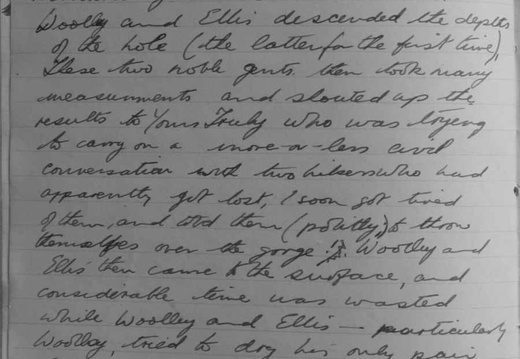 Woolley and Ellis descended the depths
of the hole (the latter for the first time).
These two noble gents then took many
measurements and shouted up the
results to Yours Truly who was trying
to carry on a more-or-less civil
conversation with two hikers who had
apparently got lost, I soon got tired
of them, and told them (politely) to throw
themselves over the gorge. Woolley and
Ellis then came to the surface, and
considerable time was wasted
while Woolley and Ellis — particularly
Woolley, tried to dry his only pair